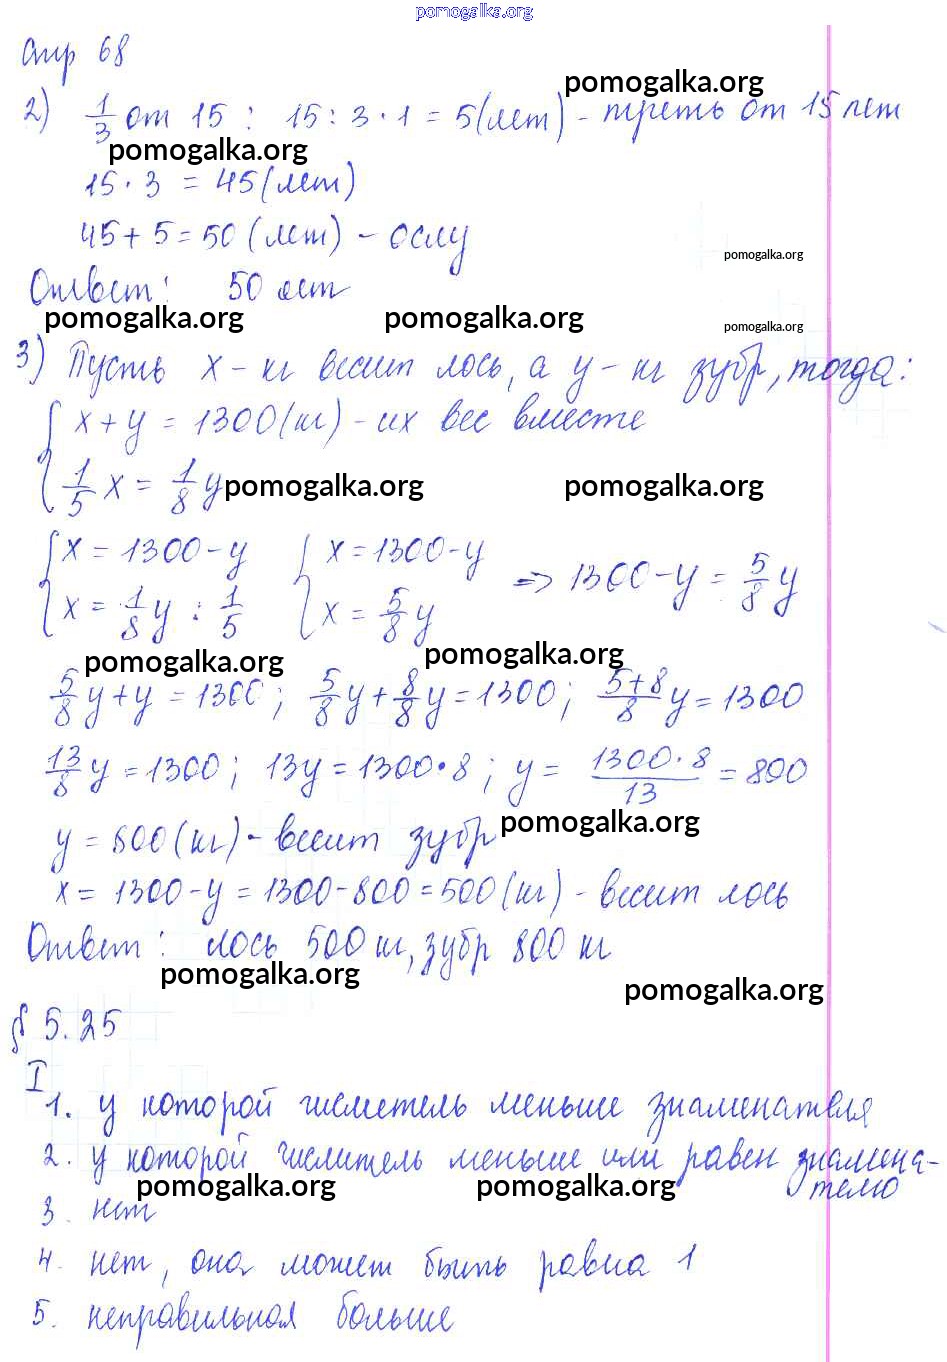 pomogalka.org
стр 68
pomogalka.org
2) 1/3 от 15 : 15 : 3 · 1 = 5 (лет) - треть от 15 лет
pomogalka.org
15 · 3 = 45 (лет)
45 + 5 = 50 (лет) - ослу
pomogalka.org
Ответ: 50 лет
pomogalka.org pomogalka.org pomogalka.org
3) Пусть x - кг весит лось, а y - кг зубр, тогда:
{ x + y = 1300 (кг) - их вес вместе
{ 1/5 x = 1/8 y
pomogalka.org pomogalka.org
{ x = 1300 - y { x = 1300 - y
{ x = 1/8 y : 1/5 { x = 5/8 y => 1300 - y = 5/8 y
pomogalka.org pomogalka.org
5/8 y + y = 1300; 5/8 y + 8/8 y = 1300; (5+8)/8 y = 1300
13/8 y = 1300; 13y = 1300 · 8; y = (1300 · 8)/13 = 800
pomogalka.org
y = 800 (кг) - весит зубр
x = 1300 - y = 1300 - 800 = 500 (кг) - весит лось
Ответ: лось 500 кг, зубр 800 кг
pomogalka.org pomogalka.org
§ 5.25
I
1. у которой числитель меньше знаменателя
2. у которой числитель меньше или равен знамена-
телю
pomogalka.org pomogalka.org
3. нет
4. нет, она может быть равна 1
5. неправильная больше